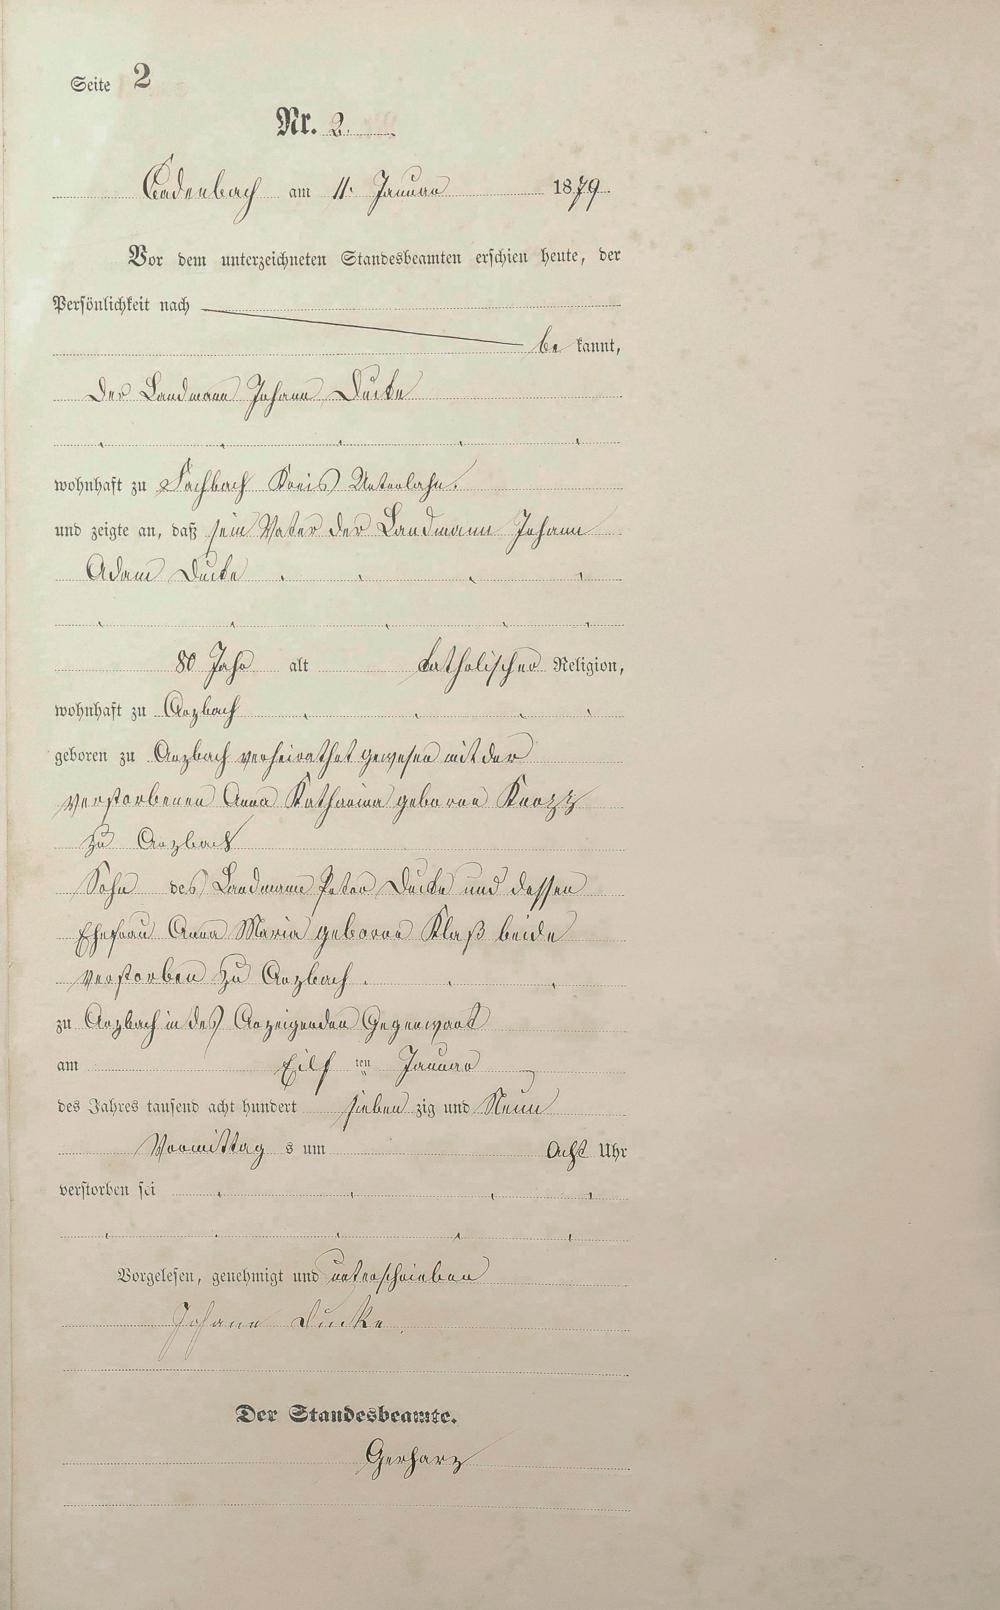 Seite 2
Nr. 2.
Cadenbach am 11. Januar 1879.
Vor dem unterzeichneten Standesbeamten erschien heute, der
Persönlichkeit nach
be kannt,
der Landmann Johann Ducke
wohnhaft zu Fachbach Kreis Unterlahn.
und zeigte an, daß sein Vater der Landmann Johann
Adam Ducke
80 Jahr alt katholischer Religion,
wohnhaft zu Arzbach
geboren zu Arzbach verheirathet gewesen mit der
verstorbenen Anna Katharina geborne
zu Arzbach
Sohn des Landmann Peter Ducke und dessen
Ehefrau Anna Maria geborne Klaß beide
verstorben zu Arzbach.
zu Arzbach in des Anzeigenden Gegenwart
am Eilf ten Januar
des Jahres tausend acht hundert sieben zig und Neun
Vormittag s um Acht Uhr
verstorben sei
Vorgelesen, genehmigt und unterschrieben
Johann Ducke
Der Standesbeamte.
Gerharz